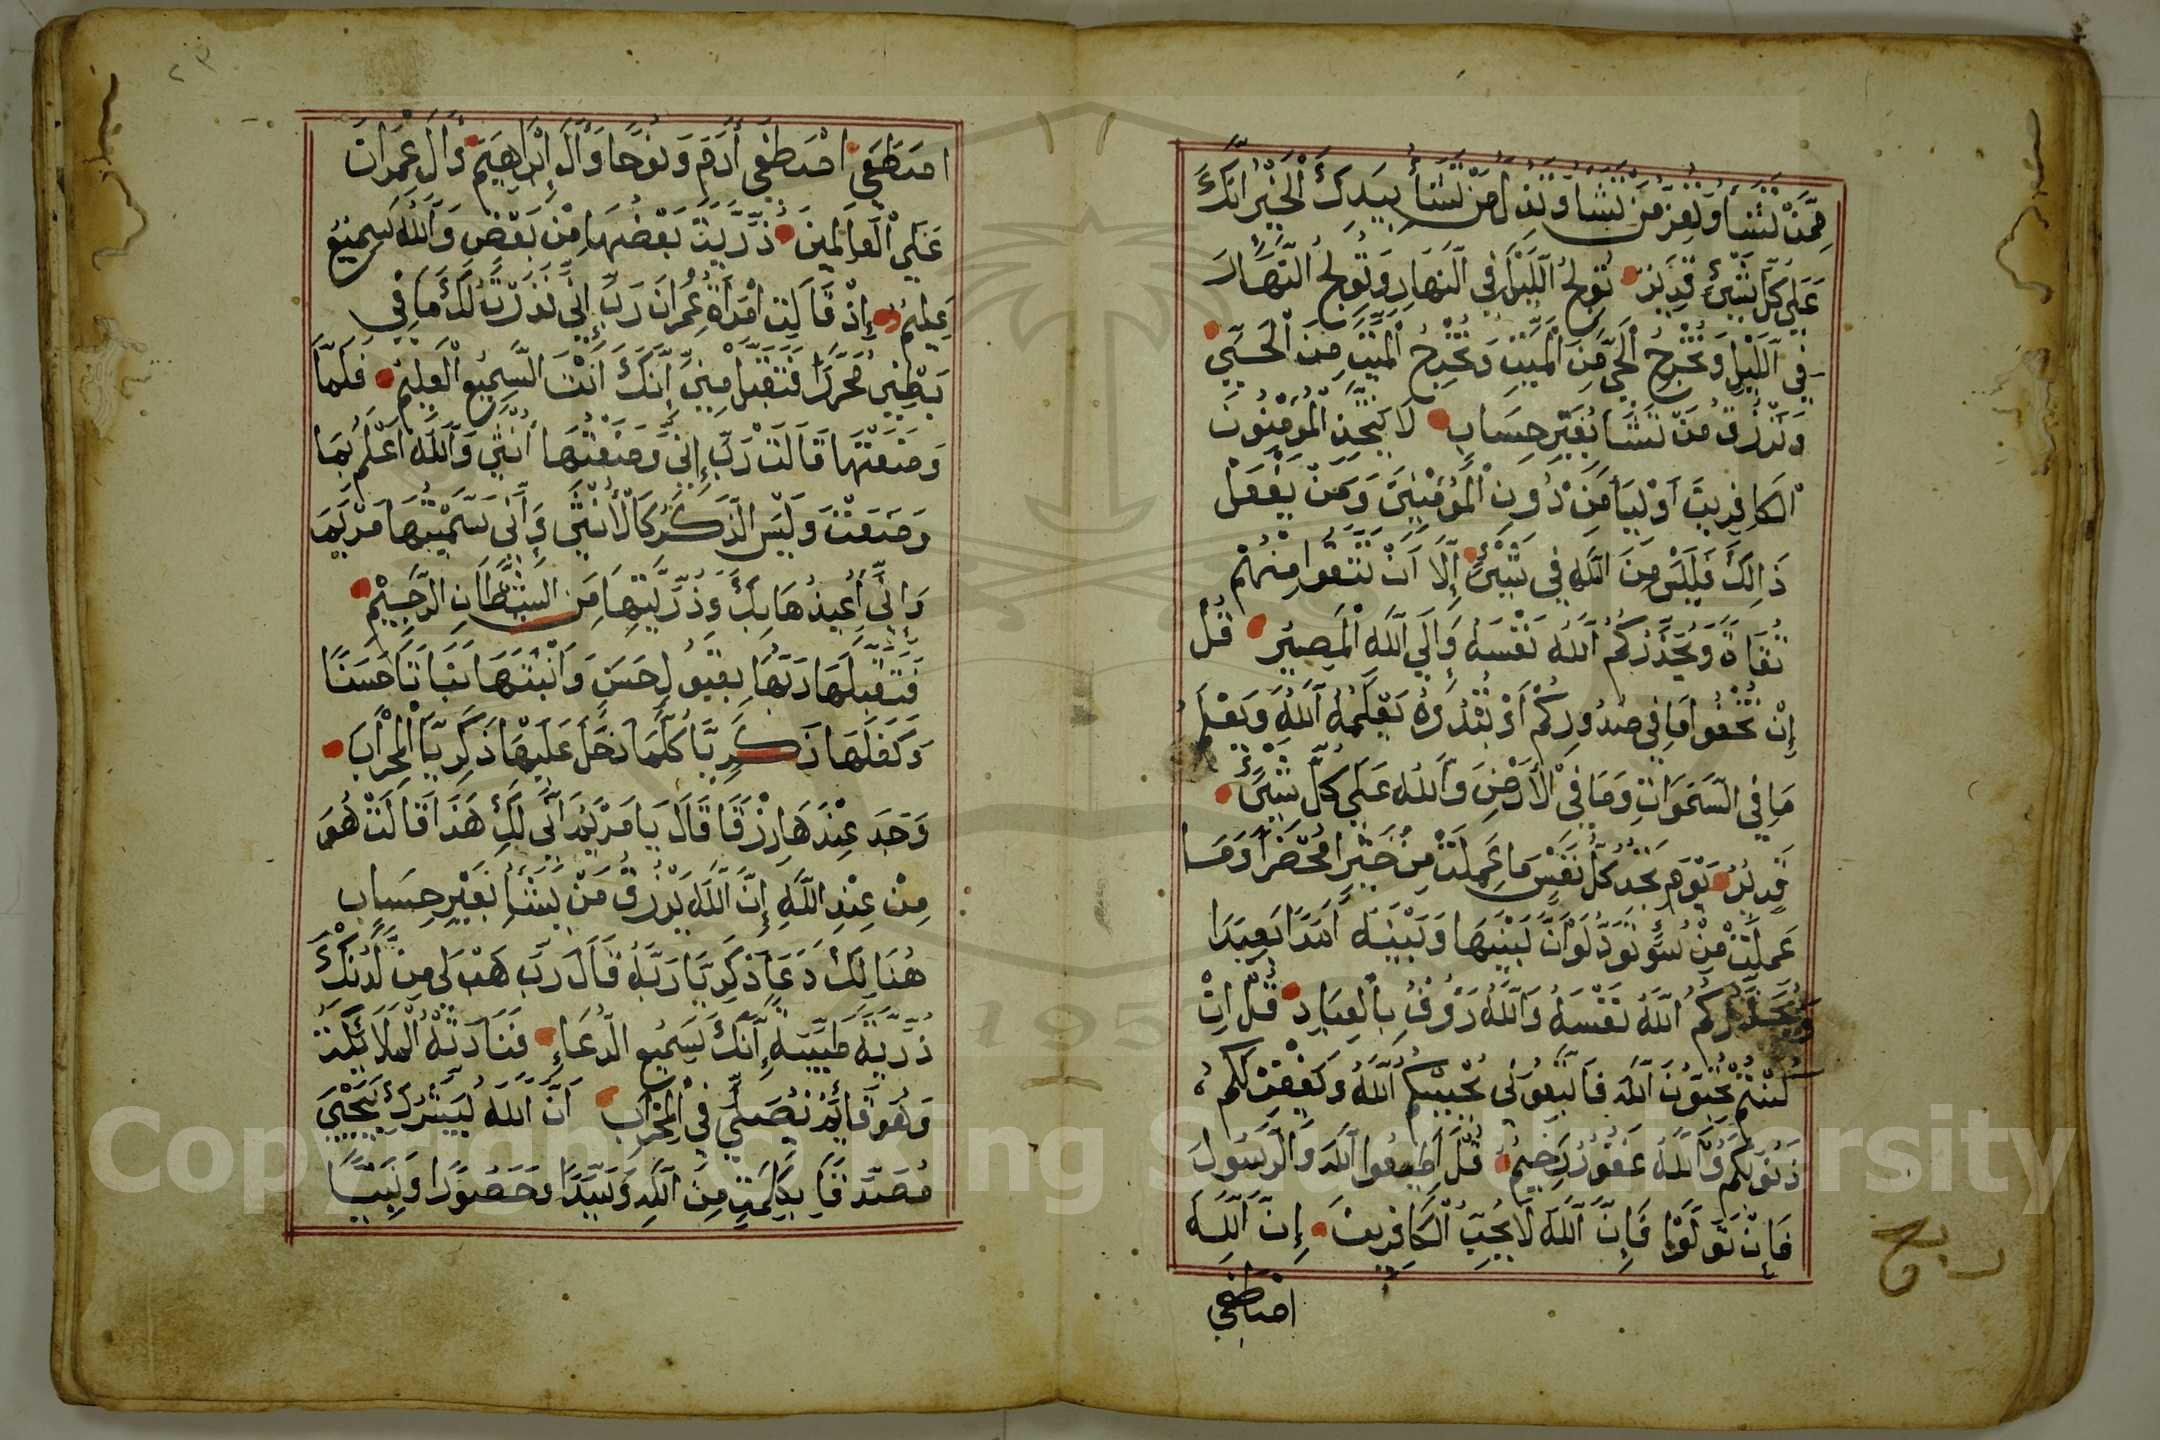 مِمَّنْ تَشَا وَتُعِزُّ مَنْ تَشَا وَتُذِلُّ مَنْ تَشَأُ بِيَدِكَ الْخَيْرُ اِنَّكَ
عَلَى كُلِّ شَيْئٍ قَدِيرٌ تُولِجُ الَّيْلَ فِي النَّهَارِ وَتُولِجُ النَّهَارَ
فِي الَّيْلِ وَتُخْرِجُ الْحَيَّ مِنَ الْمَيِّتِ وَتُخْرِجُ الْمَيِّتَ مِنَ الْحَيِّ
وَتَرْزُقُ مَنْ تَشَا بِغَيْرِ حِسَابٍ لَا يَتَّخِذِ الْمُؤْمِنُونَ
الْكَافِرِينَ اَوْلِيَا مِنْ دُونِ الْمُؤْمِنِينَ وَمَنْ يَفْعَلْ
ذَالِكَ فَلَيْسَ مِنَ اللَّهِ فِي شَيْئٍ إِلَّا اَنْ تَتَّقُوا مِنْهُمْ
تُقَاةً وَيُحَذِّرُكُمُ اللَّهُ نَفْسَهُ وَإِلَى اللَّهِ الْمَصِيرُ قُلْ
إِنْ تُخْفُوا مَا فِي صُدُورِكُمْ اَوْ تُبْدُوهُ يَعْلَمْهُ اللَّهُ وَيَعْلَمُ
مَا فِي السَّمَوَاتِ وَمَا فِي الْأَرْضِ وَاللَّهُ عَلَى كُلِّ شَيْئٍ
قَدِيرٌ يَوْمَ تَجِدُ كُلُّ نَفْسٍ مَا عَمِلَتْ مِنْ خَيْرٍ مُحْضَرًا وَمَا
عَمِلَتْ مِنْ سُوٍءٍ تَوَدُّ لَوْ اَنَّ بَيْنَهَا وَبَيْنَهُ اَمَدًا بَعِيدًا
وَيُحَذِّرُكُمُ اللَّهُ نَفْسَهُ وَاللَّهُ رَؤُفٌ بِالْعِبَادِ قُلْ اِنْ
كُنْتُمْ تُحِبُّونَ اللَّهَ فَاتَّبِعُونِي يُحْبِبْكُمُ اللَّهُ وَيَغْفِرْ لَكُمْ
ذُنُوبَكُمْ وَاللَّهُ غَفُورٌ رَحِيمٌ قُلْ اَطِيعُوا اللَّهَ وَالرَّسُولَ
فَإِنْ تَوَلَّوْا فَإِنَّ اللَّهَ لَا يُحِبُّ الْكَافِرِينَ إِنَّ اللَّهَ
اصْطَفَى
ربع
٢٣
اصْطَفَى اصْطَفَى أَدَمَ وَنُوحًا وَأَلَ إِبْرَاهِيمَ وَأَلَ عِمْرَانَ
عَلَى الْعَالَمِينَ ذُرِّيَّةً بَعْضُهَا مِنْ بَعْضٍ وَاللَّهُ سَمِيعٌ
عَلِيمٌ إِذْ قَالَتِ امْرَأَةُ عِمْرَانَ رَبِّ إِنِّي نَذَرْتُ لَكَ مَا فِي
بَطْنِي مُحَرَّرًا فَتَقَبَّلْ مِنِّي إِنَّكَ اَنْتَ السَّمِيعُ الْعَلِيمُ فَلَمَّا
وَضَعَتْهَا قَالَتْ رَبِّ إِنِّي وَضَعْتُهَا أُنْثَى وَاللَّهُ اَعْلَمُ بِمَا
وَضَعَتْ وَلَيْسَ الذَّكَرُ كَالْأُنْثَى وَإِنِّي سَمَّيْتُهَا مَرْيَمَ
وَإِنِّي أُعِيذُهَا بِكَ وَذُرِّيَّتَهَا مِنَ الشَّيْطَانِ الرَّجِيمِ
فَتَقَبَّلَهَا رَبُّهَا بِقَبُولٍ حَسَنٍ وَاَنْبَتَهَا نَبَاتًا حَسَنًا
وَكَفَّلَهَا زَكَرِيَّا كُلَّمَا دَخَلَ عَلَيْهَا زَكَرِيَّا الْمِحْرَابَ
وَجَدَ عِنْدَهَا رِزْقًا قَالَ يَا مَرْيَمُ اَنَّى لَكِ هَذَا قَالَتْ هُوَ
مِنْ عِنْدِ اللَّهِ إِنَّ اللَّهَ يَرْزُقُ مَنْ يَشَأُ بِغَيْرِ حِسَابٍ
هُنَالِكَ دَعَا زَكَرِيَّا رَبَّهُ قَالَ رَبِّ هَبْ لِي مِنْ لَدُنْكَ
ذُرِّيَّةً طَيِّبَةً إِنَّكَ سَمِيعُ الدُّعَاءِ فَنَادَتْهُ الْمَلَائِكَةُ
وَهُوَ قَائِمٌ يُصَلِّي فِي الْمِحْرَابِ اَنَّ اللَّهَ يُبَشِّرُكَ بِيَحْيَى
مُصَدِّقًا بِكَلِمَةٍ مِنَ اللَّهِ وَسَيِّدًا وَحَصُورًا وَنَبِيًّا
Copyright © King Saud University
195